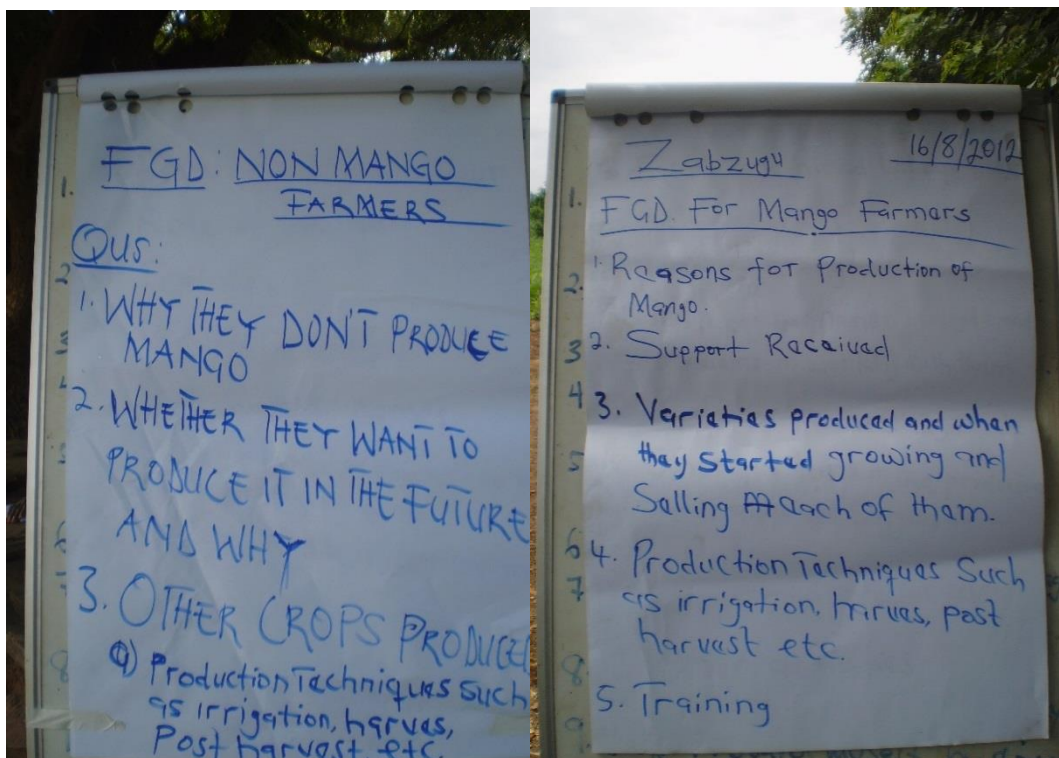 FGD: NON MANGO
FARMERS
QUS:
1. WHY THEY DON'T PRODUCE
MANGO
2. WHETHER THEY WANT TO
PRODUCE IT IN THE FUTURE
AND WHY
3. OTHER CROPS PRODUCE
a) Production Techniques Such
as irrigation, harves,
Post harvest etc.
Zabzugu 16/8/2012
FGD. For Mango Farmers
1. Reasons for Production of
Mango.
2. Support Received
3. Varieties produced and when
they Started growing and
Selling each of them.
4. Production Techniques Such
as irrigation, harves, post
harvest etc.
5. Training